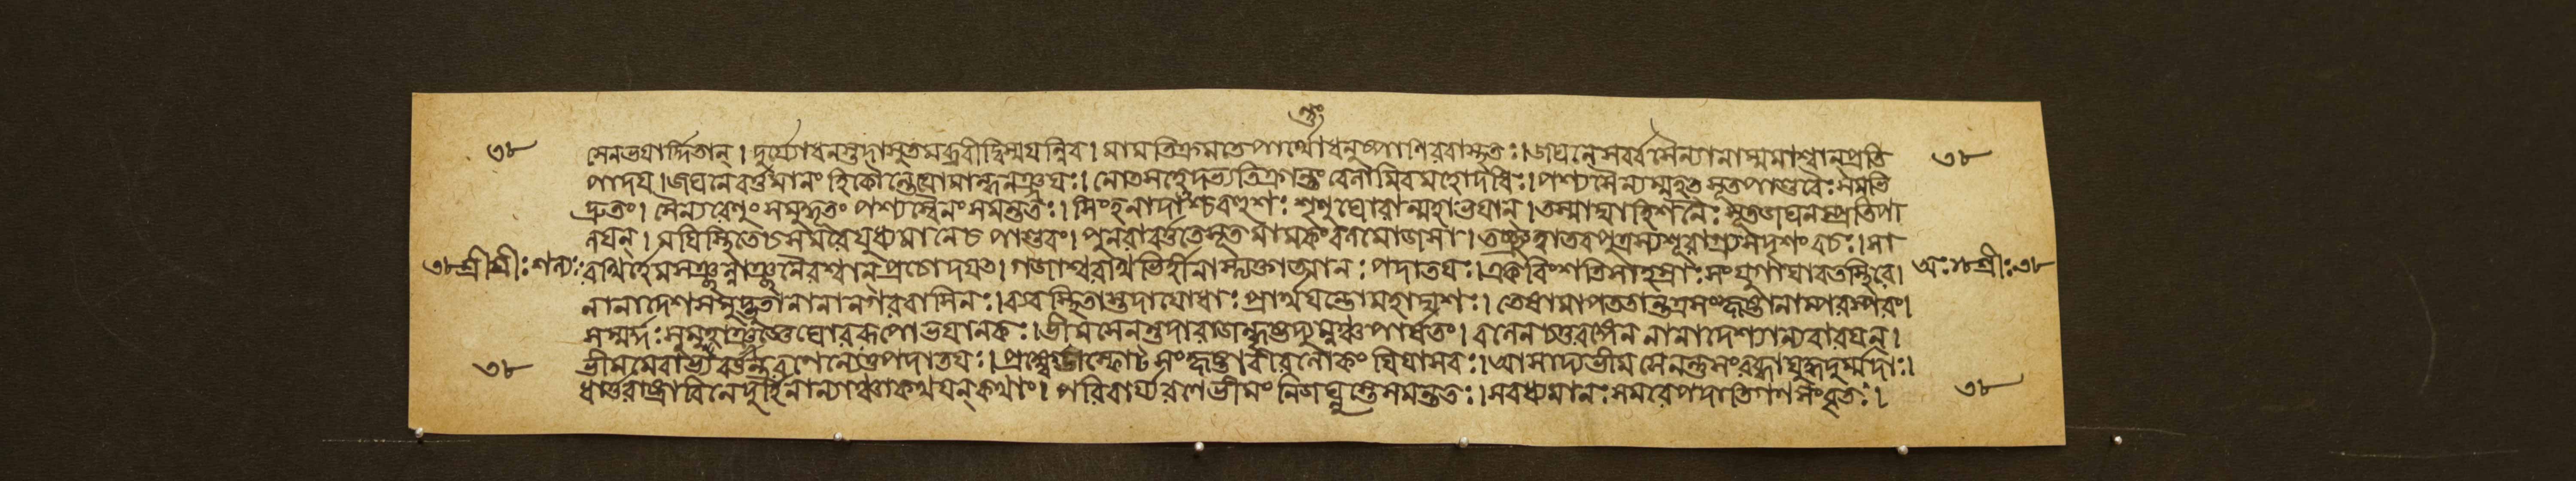 ৩৮ সেনভয়ার্দ্দিতান্। দুর্য্যোধনস্তদাসূতমব্রবীদ্বিস্ময়ন্নিব। মামতিক্রমতে পার্থোধনুষ্পাণিরবাস্থিতঃ। জঘনেসর্ব্বসৈন্যানাম্মমাশ্বান্প্রতি ৩৮
পাদয়। জঘনেবর্ত্তমানং হিকৌন্তেয়োমান্ধনঞ্জয়ঃ। নোৎসহেদভ্যতিক্রান্তুং বেলামিবমহোদধিঃ। পশ্যসৈন্যম্মহৎসূতপাণ্ডবৈঃ সমভি
দ্রুতং। সৈন্যরেণুং সমুদ্ধূতং পশ্যস্বৈনং সমন্ততঃ। সিংহনাদাংশ্চবহুশঃ শৃণুঘোরান্মহাভয়ান্। তস্মাদ্যাহিশনৈঃ সূতজঘনম্প্রতিপা
লয়ন্। ময়িস্থিতেচসমরেযুধ্যমানেচ পাণ্ডবং। পুনরাবর্ত্ততেসূত মামকং বলমোজসা। তচ্ছ্রুত্বাতবপুত্রস্যশূরাগ্র্যসদৃশং বচঃ। সা
৩৮ শ্রীশ্রীঃ শল্যঃ রথির্হেমসঞ্ছন্নাঞ্ছনৈরশ্বান্ প্রচোদয়ৎ। গজাশ্বরথিভির্হীনাস্ত্যক্তাত্মানঃ পদাতয়ঃ। একবিংশতিসাহস্রাঃ সংযুগায়াবতস্থিরে। অঃ ১৮ শ্রীঃ ৩৮
নানাদেশসমুদ্ভূতানানানগরবাসিনঃ। ব্যবস্থিতাস্তদাযোধাঃ প্রার্থয়ন্তোমহদ্যশঃ। তেষামাপততান্তত্রসংহৃষ্টানাম্পরস্পরং।
সম্মর্দ্দঃ সুমহাঞ্জজ্ঞেঘোররূপোভয়ানকঃ। ভীমসেনন্তদারাজন্ধৃষ্টদ্যুম্নঞ্চপার্ষতং। বলেনচতুরঙ্গেন নানাদেশ্যান্যবারয়ন্।
৩৮ ভীমমেবাভ্যবর্ত্তন্তরণেন্যেতুপদাতয়ঃ। প্রক্ষ্বেড্যাস্ফোট্য সংহৃষ্টাবীরলোকং যিযাসবঃ। আসাদ্যভীমসেনন্তুসংরব্ধাযুদ্ধদুর্ম্মদাঃ।
ধার্ত্তরাষ্ট্রাবিনেদুর্হিনান্যাঞ্চাকথয়ন্কথাং। পরিবার্য্যরণেভীমং নিজঘ্নুস্তেসমন্ততঃ। সবধ্যমানঃ সমরেপদাতিগণসংবৃতঃ। ৩৮